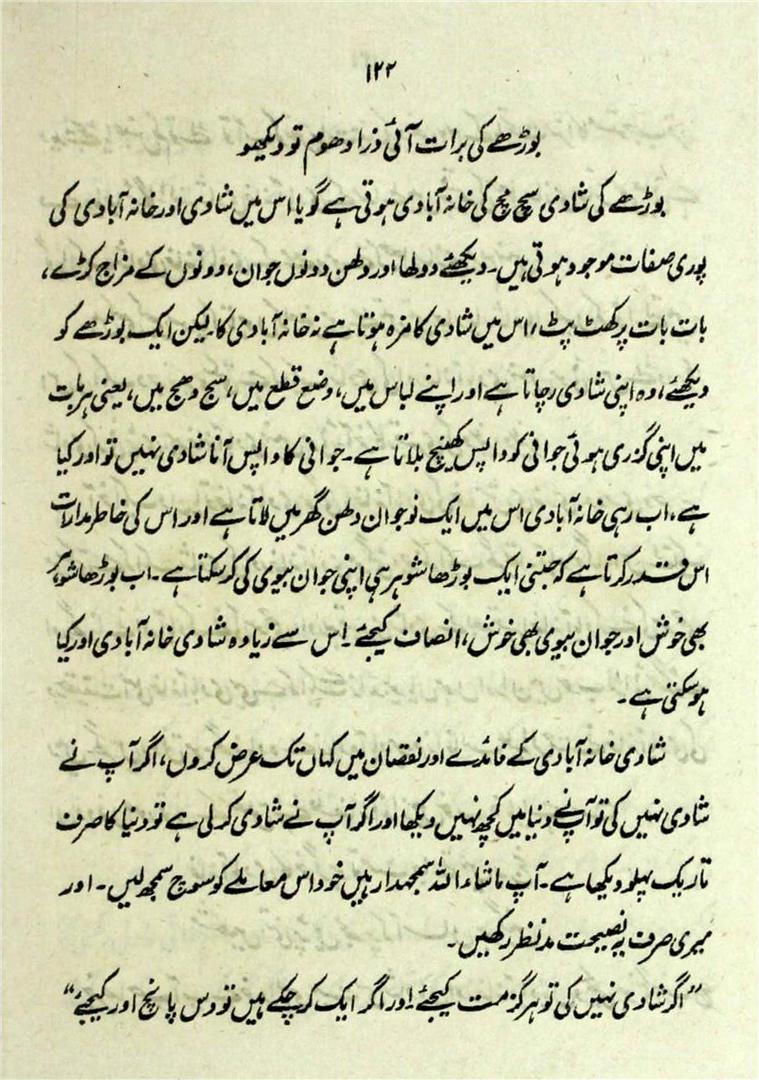 ۱۲۲
بوڑھے کی برات آئی ذرا دھوم تو دیکھو
بوڑھے کی شادی سچ مچ کی خانہ آبادی ہوتی ہے گویا اس میں شادی اور خانہ آبادی کی
پوری صفات موجود ہوتی ہیں۔ دیکھئے دولھا اور دلھن دونوں جوان، دونوں کے مزاج کڑے،
بات بات پر کھٹ پٹ، اس میں شادی کا مزہ ہوتا ہے نہ خانہ آبادی کا۔ لیکن ایک بوڑھے کو
دیکھئے، وہ اپنی شادی رچاتا ہے اور اپنے لباس میں، وضع قطع میں، سج دھج میں، یعنی ہر بات
میں اپنی گزری ہوئی جوانی کو واپس کھینچ بلاتا ہے۔ جوانی کا واپس آنا شادی نہیں تو اور کیا
ہے، اب رہی خانہ آبادی اس میں ایک نوجوان دلھن گھر میں لاتا ہے اور اس کی خاطر مدارات
اس قدر کرتا ہے کہ جتنی ایک بوڑھا شوہر ہی اپنی جوان بیوی کی کر سکتا ہے۔ اب بوڑھا شوہر
بھی خوش اور جوان بیوی بھی خوش، انصاف کیجئے۔ اس سے زیادہ شادی خانہ آبادی اور کیا
ہو سکتی ہے۔
شادی خانہ آبادی کے فائدے اور نقصان میں کہاں تک عرض کروں، اگر آپ نے
شادی نہیں کی تو آپ نے دنیا میں کچھ نہیں دیکھا اور اگر آپ نے شادی کر لی ہے تو دنیا کا صرف
تاریک پہلو دیکھا ہے۔ آپ ماشاء اللہ سمجھدار ہیں خود اس معاملے کو سوچ سمجھ لیں۔ اور
میری صرف یہ نصیحت مدنظر رکھیں۔
”اگر شادی نہیں کی تو ہرگز مت کیجئے۔ اور اگر ایک کر چکے ہیں تو دس پانچ اور کیجئے“